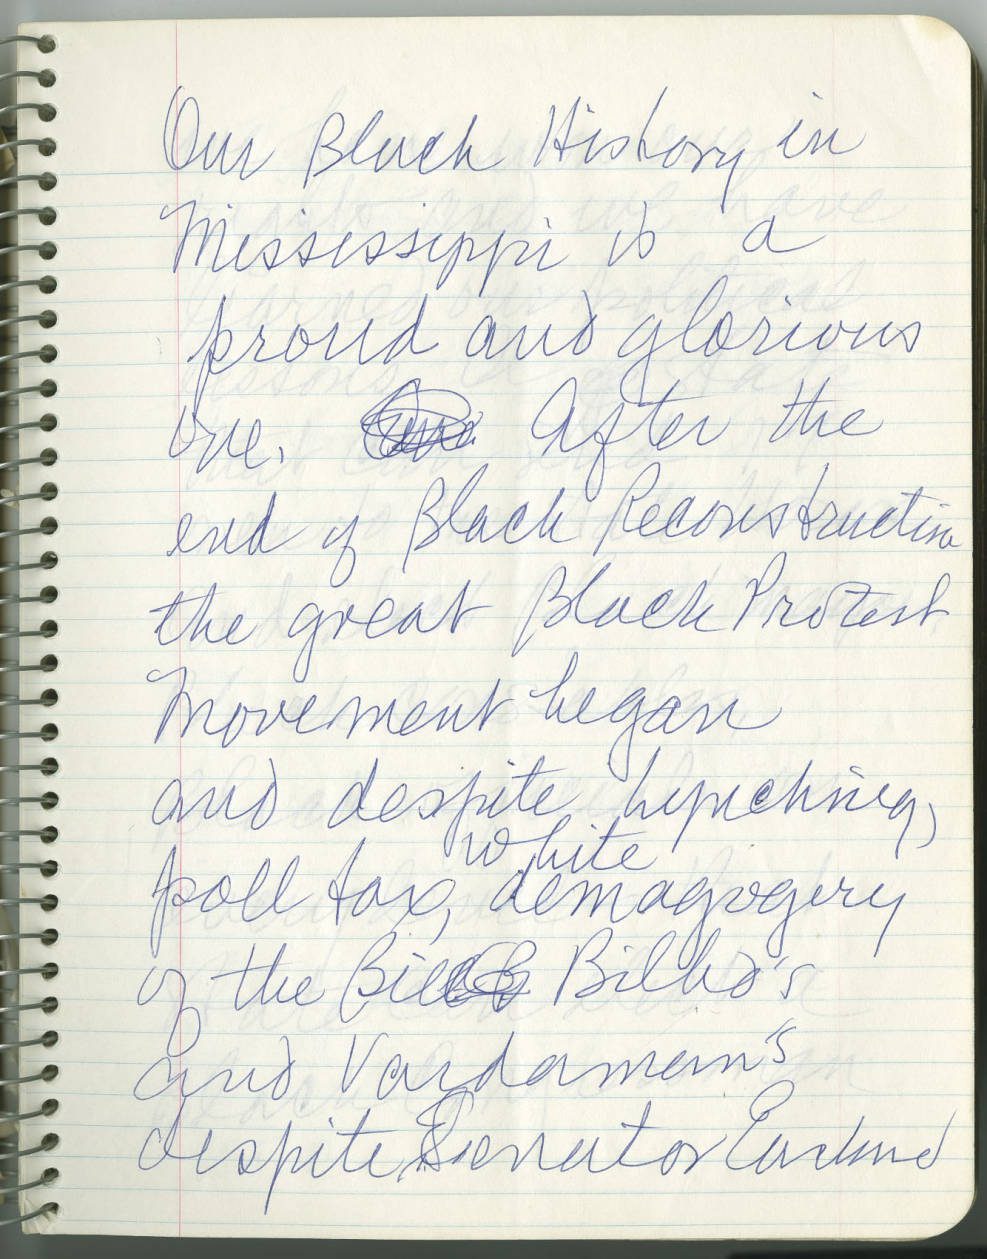 Our Black History in
Mississippi is a
proud and glorious
one. After the
end of Black Reconstruction
the great Black Protest
Movement began
and despite lynching,
white
poll tax, demagogery
of the Bilbo's
and Vardamin's
despite Senator Eastland